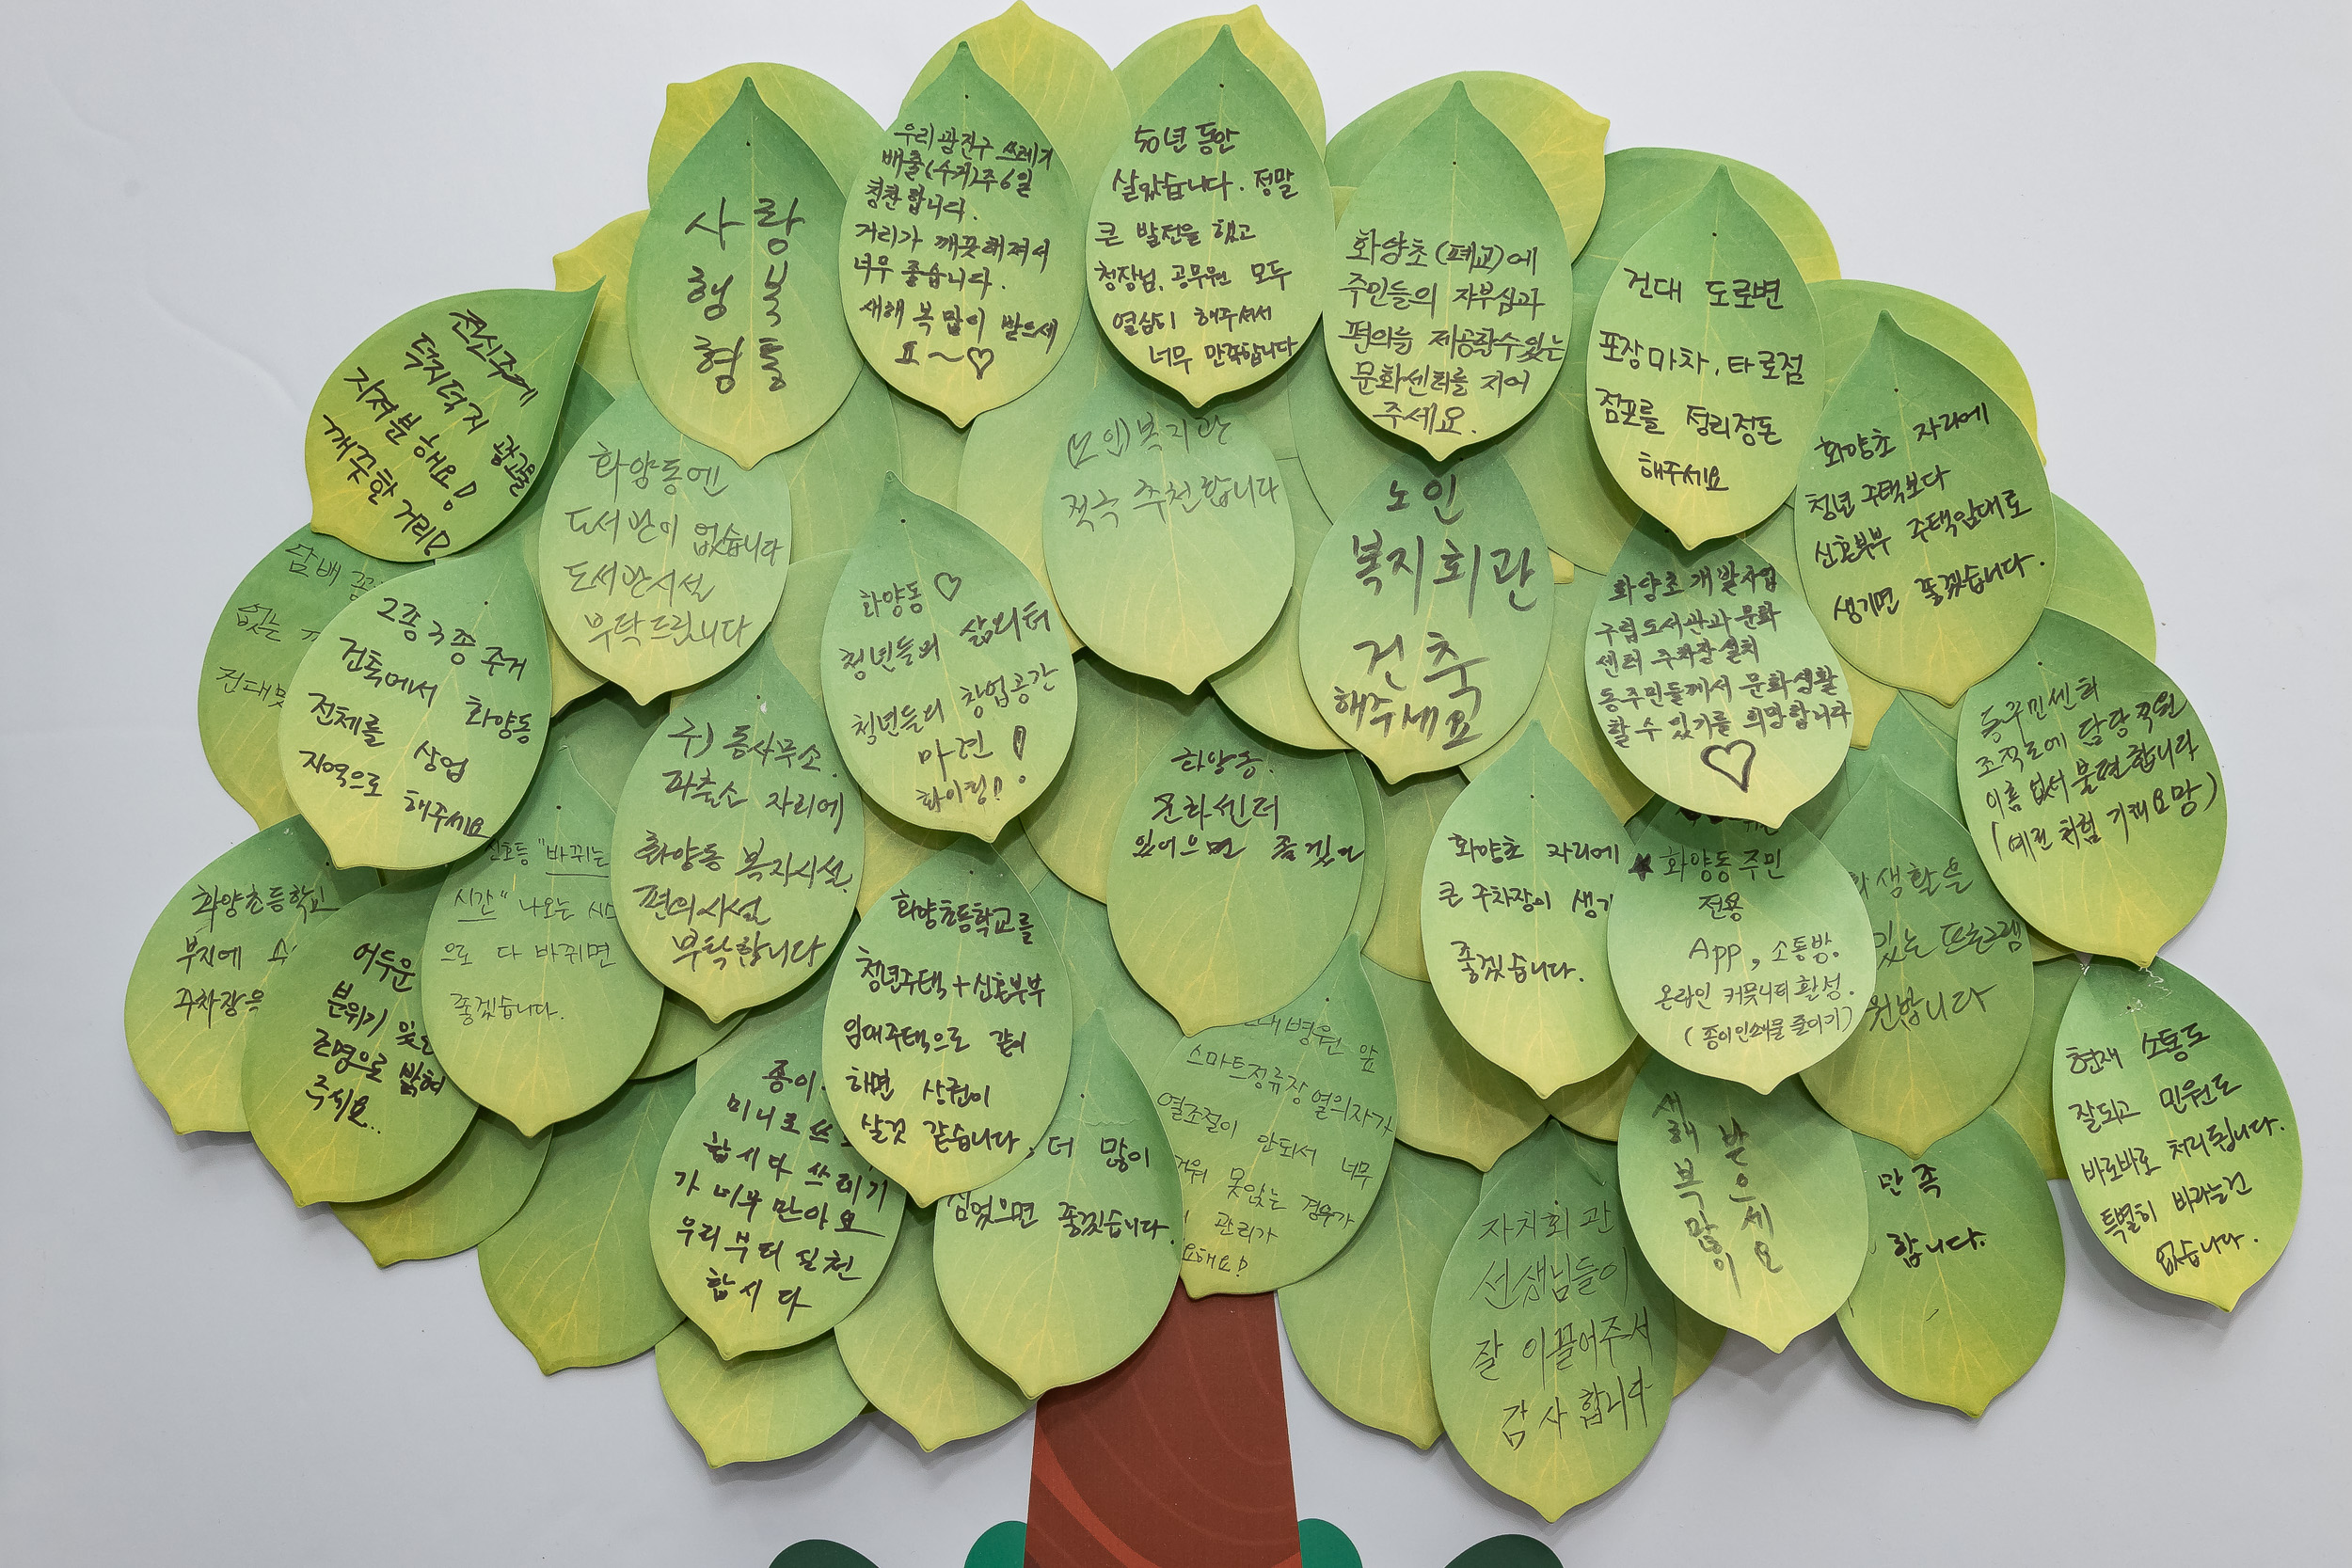 사랑
행복
형통
우리 광진구 쓰레기
배출(수거)주6일
칭찬합니다.
거리가 깨끗해져서
너무 좋습니다.
새해 복 많이 받으세
요~♡
50년 동안
살았습니다. 정말
큰 발전을 했고
청장님, 공무원 모두
열심히 해주셔서
너무 만족합니다
화양초(폐교)에
주민들의 자부심과
편의를 제공할수있는
문화센터를 지어
주세요.
건대 도로변
포장마차, 타로점
점포를 정리정돈
해주세요
화양초 자리에
청년 주택보다
신혼부부 주택임대로
생기면 좋겠습니다.
전신주에
덕지덕지 광고물
지저분해요!
깨끗한 거리!
화양동엔
도서관이 없습니다
도서관시설
부탁드립니다
(노인)복지관
적극 추천합니다
노인
복지회관
건축
해주세요
화양초 개발사업
구립도서관과 문화
센터 주차장 설치
동주민들께서 문화생활
할 수 있기를 희망합니다
♡
동주민센터
조직도에 담당직원
이름 없어 불편합니다
(예전처럼 기재요망)
담배
없는
건대
2종 3종 주거
건독에서 화양동
전체를 상업
지역으로 해주세요
화양동♡
청년들의 삶의터
청년들의 창업공간
마련!
화이팅!!
구) 동사무소.
파출소 자리에
화양동 복지시설.
편의시설
부탁합니다
화양동.
문화센터
있어으면 좋겠다
화양초 자리에
큰 주차장이 생기
좋겠습니다.
화양동주민
전용
App, 소통방.
온라인 커뮤니티 활성.
(종이인쇄물 줄이기)
생활을
있는 프로그램
원합니다
현재 소통도
잘되고 민원도
바로바로 처리됩니다.
특별히 바라는건
없습니다.
화양초등학교
부지에
주차장을
어두운
분위기
조명으로 밝혀
주세요..
신호등 "바뀌는
시간" 나오는
으로 다 바뀌면
좋겠습니다.
화양초등학교를
청년주택+신혼부부
임대주택으로 같이
하면 상권이
살것 같습니다
종이
미니로 쓰
합시다 쓰레기
가 너무 만아요
우리부터 실천
합시다
더 많이
심었으면 좋겠습니다.
병원 앞
스마트정류장 열의자가
열조절이 안되서 너무
못앉는 경우가
관리가
요해요!
자치회관
선생님들이
잘 이끌어주셔
감사합니다
새해 복 많이
받으세요
만족
합니다.